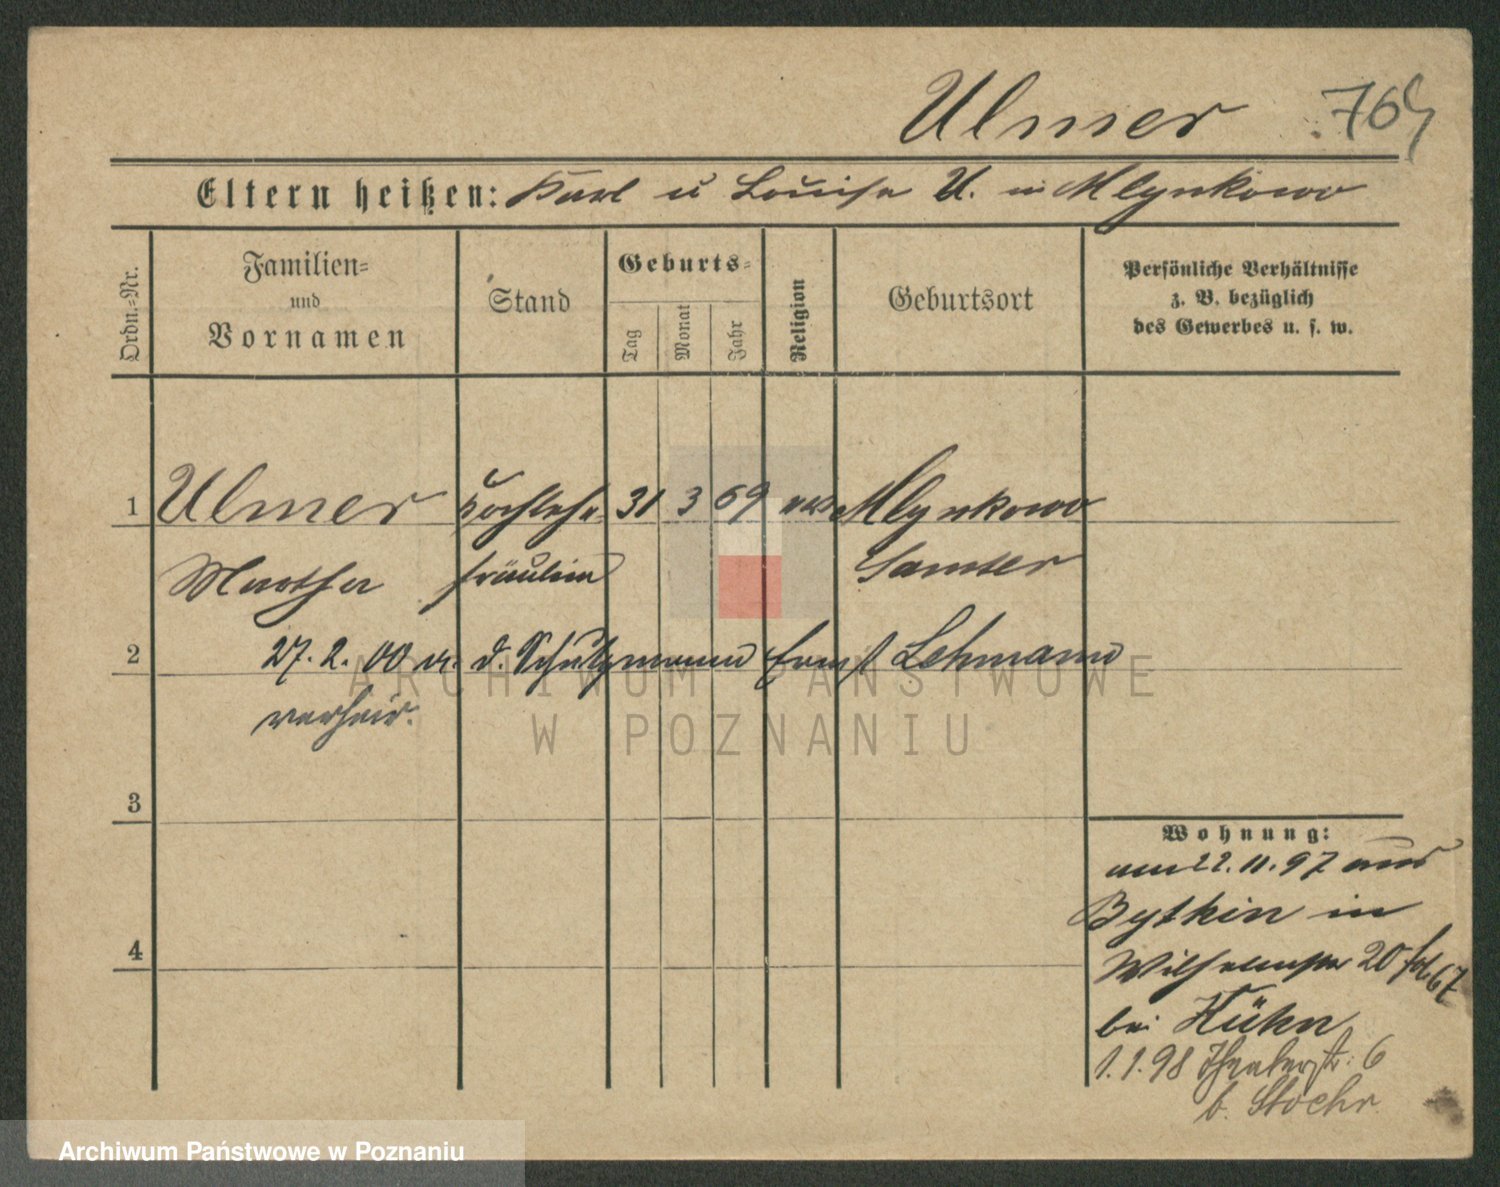 Ulmer 769
Eltern heißen: Karl u Louise U. in Mlynkowo
Ordn.-Nr.
Familien-
und
Vornamen
Stand
Geburts-
Tag
Monat
Jahr
Religion
Geburtsort
Persönliche Verhältnisse
z. B. bezüglich
des Gewerbes u. s. w.
1 Ulmer Kochlehr 31 3 69 ev Mlynkowo
Martha fräulein Samter
2 27. 2. 00 m. d. Schutzmann Ernst Lehmann
verheir.
ARCHIWUM PAŃSTWOWE
W POZNANIU
3
4
Wohnung:
am 22. 11. 97 aus
Bythin in
Wilhelmstr 20 fol. 67
bei Hühn
1. 1. 98 Theaterstr. 6
b. Stoehr
Archiwum Państwowe w Poznaniu